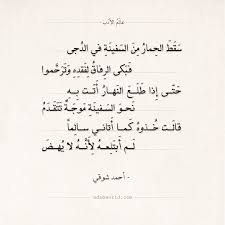 عالم الأدب
سَقَطَ الحِمارُ مِنَ السَفينَةِ في الدُجى
فَبَكى الرِفاقُ لِفَقدِهِ وَتَرَحَّموا
حَتّى إِذا طَلَعَ النَهارُ أَتَت بِهِ
نَحوَ السَفينَةِ مَوجَةٌ تَتَقَدَّمُ
قالَت خُذوهُ كَما أَتاني سالِماً
لَم أَبتَلِعهُ لِأَنَّهُ لا يُهضَمُ
- أحمد شوقي -
adabworld.com